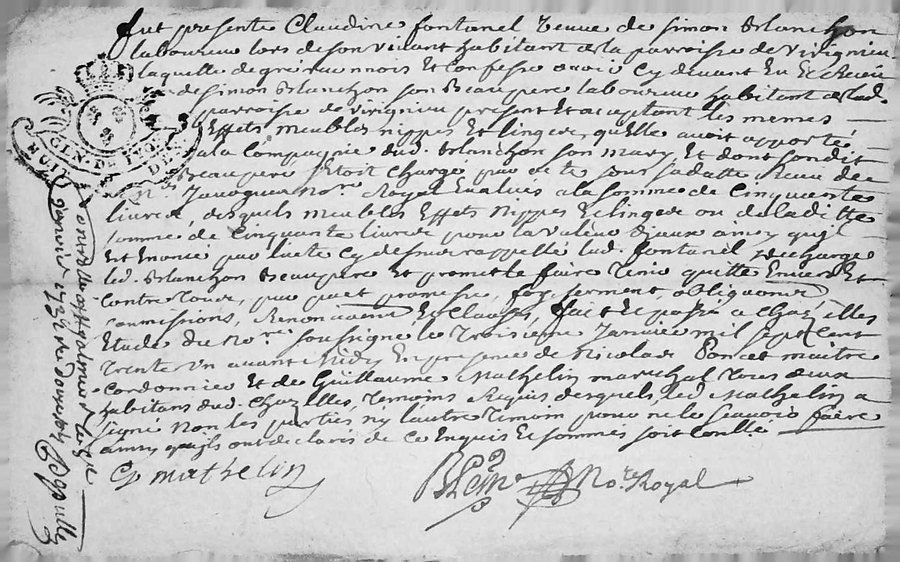 fut presente Claudine fontanel veuve de simon blanchon
laboureur lors de son vivant habitant de la parroisse de virignieu
laquelle de gré reconnois et confesse avoir cy devant eu et Receu
de simon blanchon son Beaupere laboureur habitant de lad.
parroisse de virignieu present et acceptant les memes
Effets, meubles nippes et linges, qu'elle avoit apporté
a la Compagnie dud. blanchon son mary et dont sondit
Beaupere Etoit chargé par acte sous sa datte Receu de
Nore. Royal Evalues a la somme de Cinquante
livres, desquels meubles Effets Nippes et linges ou de laditte
somme de cinquante livres pour la valeur d'iceux amsy qu'il
Est enoncé par lacte cy dessus rappellé lad. fontanel decharge
led. blanchon Beaupere et promet le faire tenir quitte Envers et
contre tous, par pact promesse, foy, serment, obligaons
soumissions, Renonciaons et Clauses, fait et passé a Chazelles
Etude du Nore. soussigné le Troisieme Janvier mil sept cent
trente un avant Midy En presence de Nicolas Poncet maitre
cordonnier Et de Guillaume Mathelin marechal tous deux
habitans dud. Chazelles temoins Requis desquels led. Mathelin a
signé Non les parties ny l'autre temoin pour ne le scavoir faire
amsy qu'ils ont declaré de ce Enquis et sommés soit conllé
G mathelin
Nore. Royal
GEN. DE LYON
janvier 1731